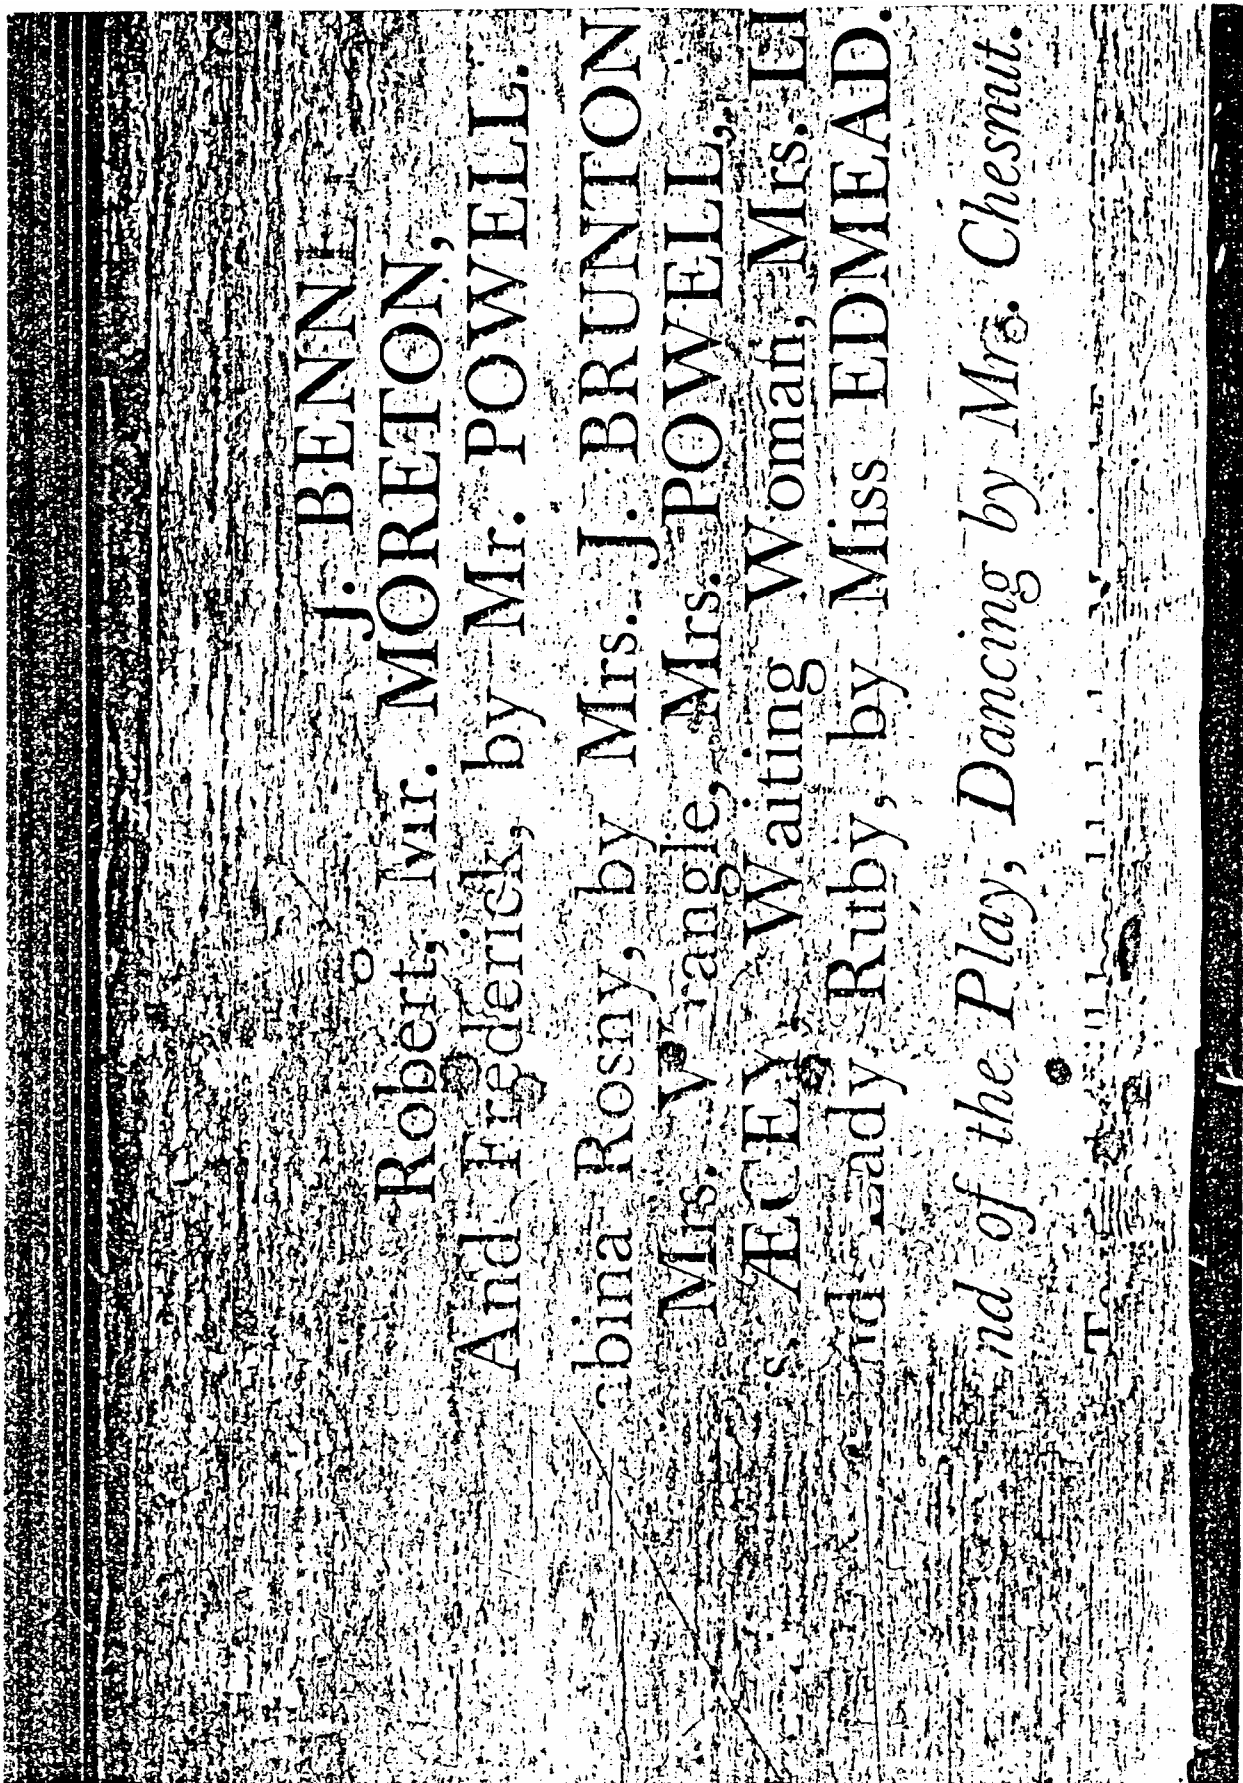 J. BENN
Robert, Mr. MORETON,
And Frederick, by Mr. POWELL.
bina Rosny, by Mrs. J. BRUNTON
Mrs. Wrangle, Mrs. POWELL,
s. ÆGEY, Waiting Woman, Mrs. LI
nd Lady Ruby, by Miss EDMEAD.
nd of the Play, Dancing by Mrs. Chesnut.